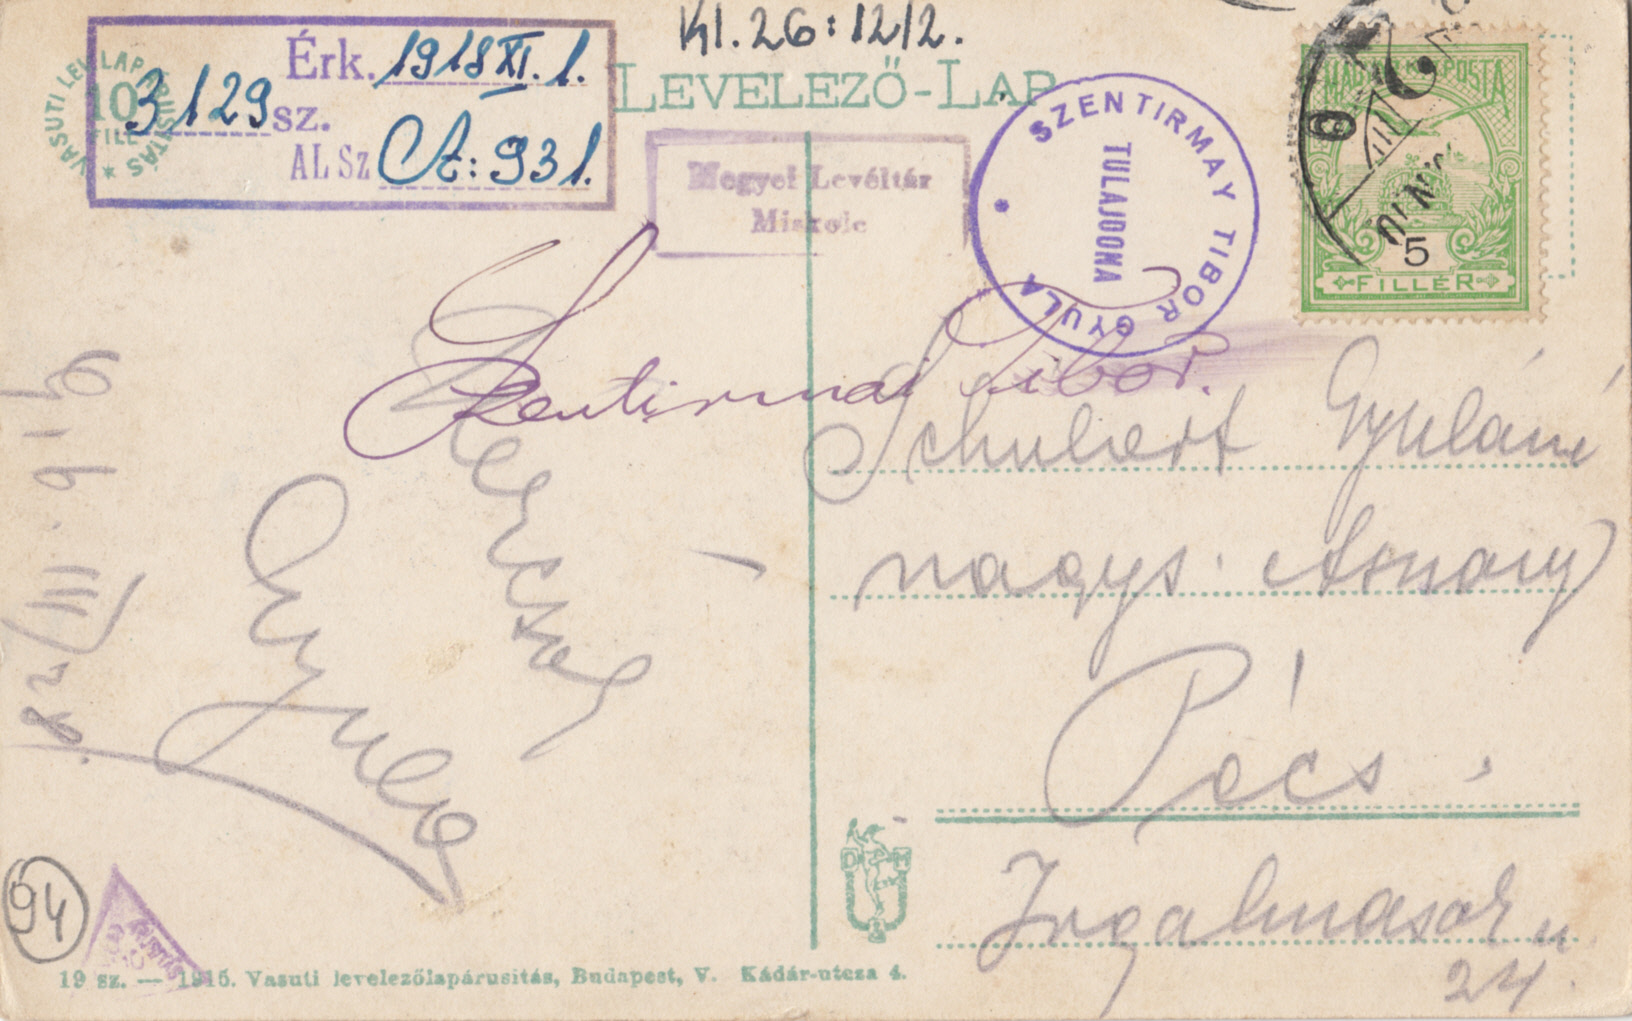 Kl. 26:12/2.
LEVELEZŐ-LAP
VASUTI LEVELEZŐLAPÁRUSITÁS
10
FILLÉR
Érk. 1918 XI. 1.
3129 sz.
AL Sz Ct: 931.
Megyei Levéltár
Miskolc
SZENTIRMAY TIBOR GYULA
TULAJDONA
MAGYAR KIR. POSTA
5
FILLÉR
Szentirmai Tibor.
Schubert Gyuláné
nagys. Asszony
Pécs.
Irgalmasok u
24.
916
III
22
Kézcsók
Gyula
94
D M
19 sz. — 1915. Vasuti levelezőlapárusitás, Budapest, V. Kádár-utcza 4.